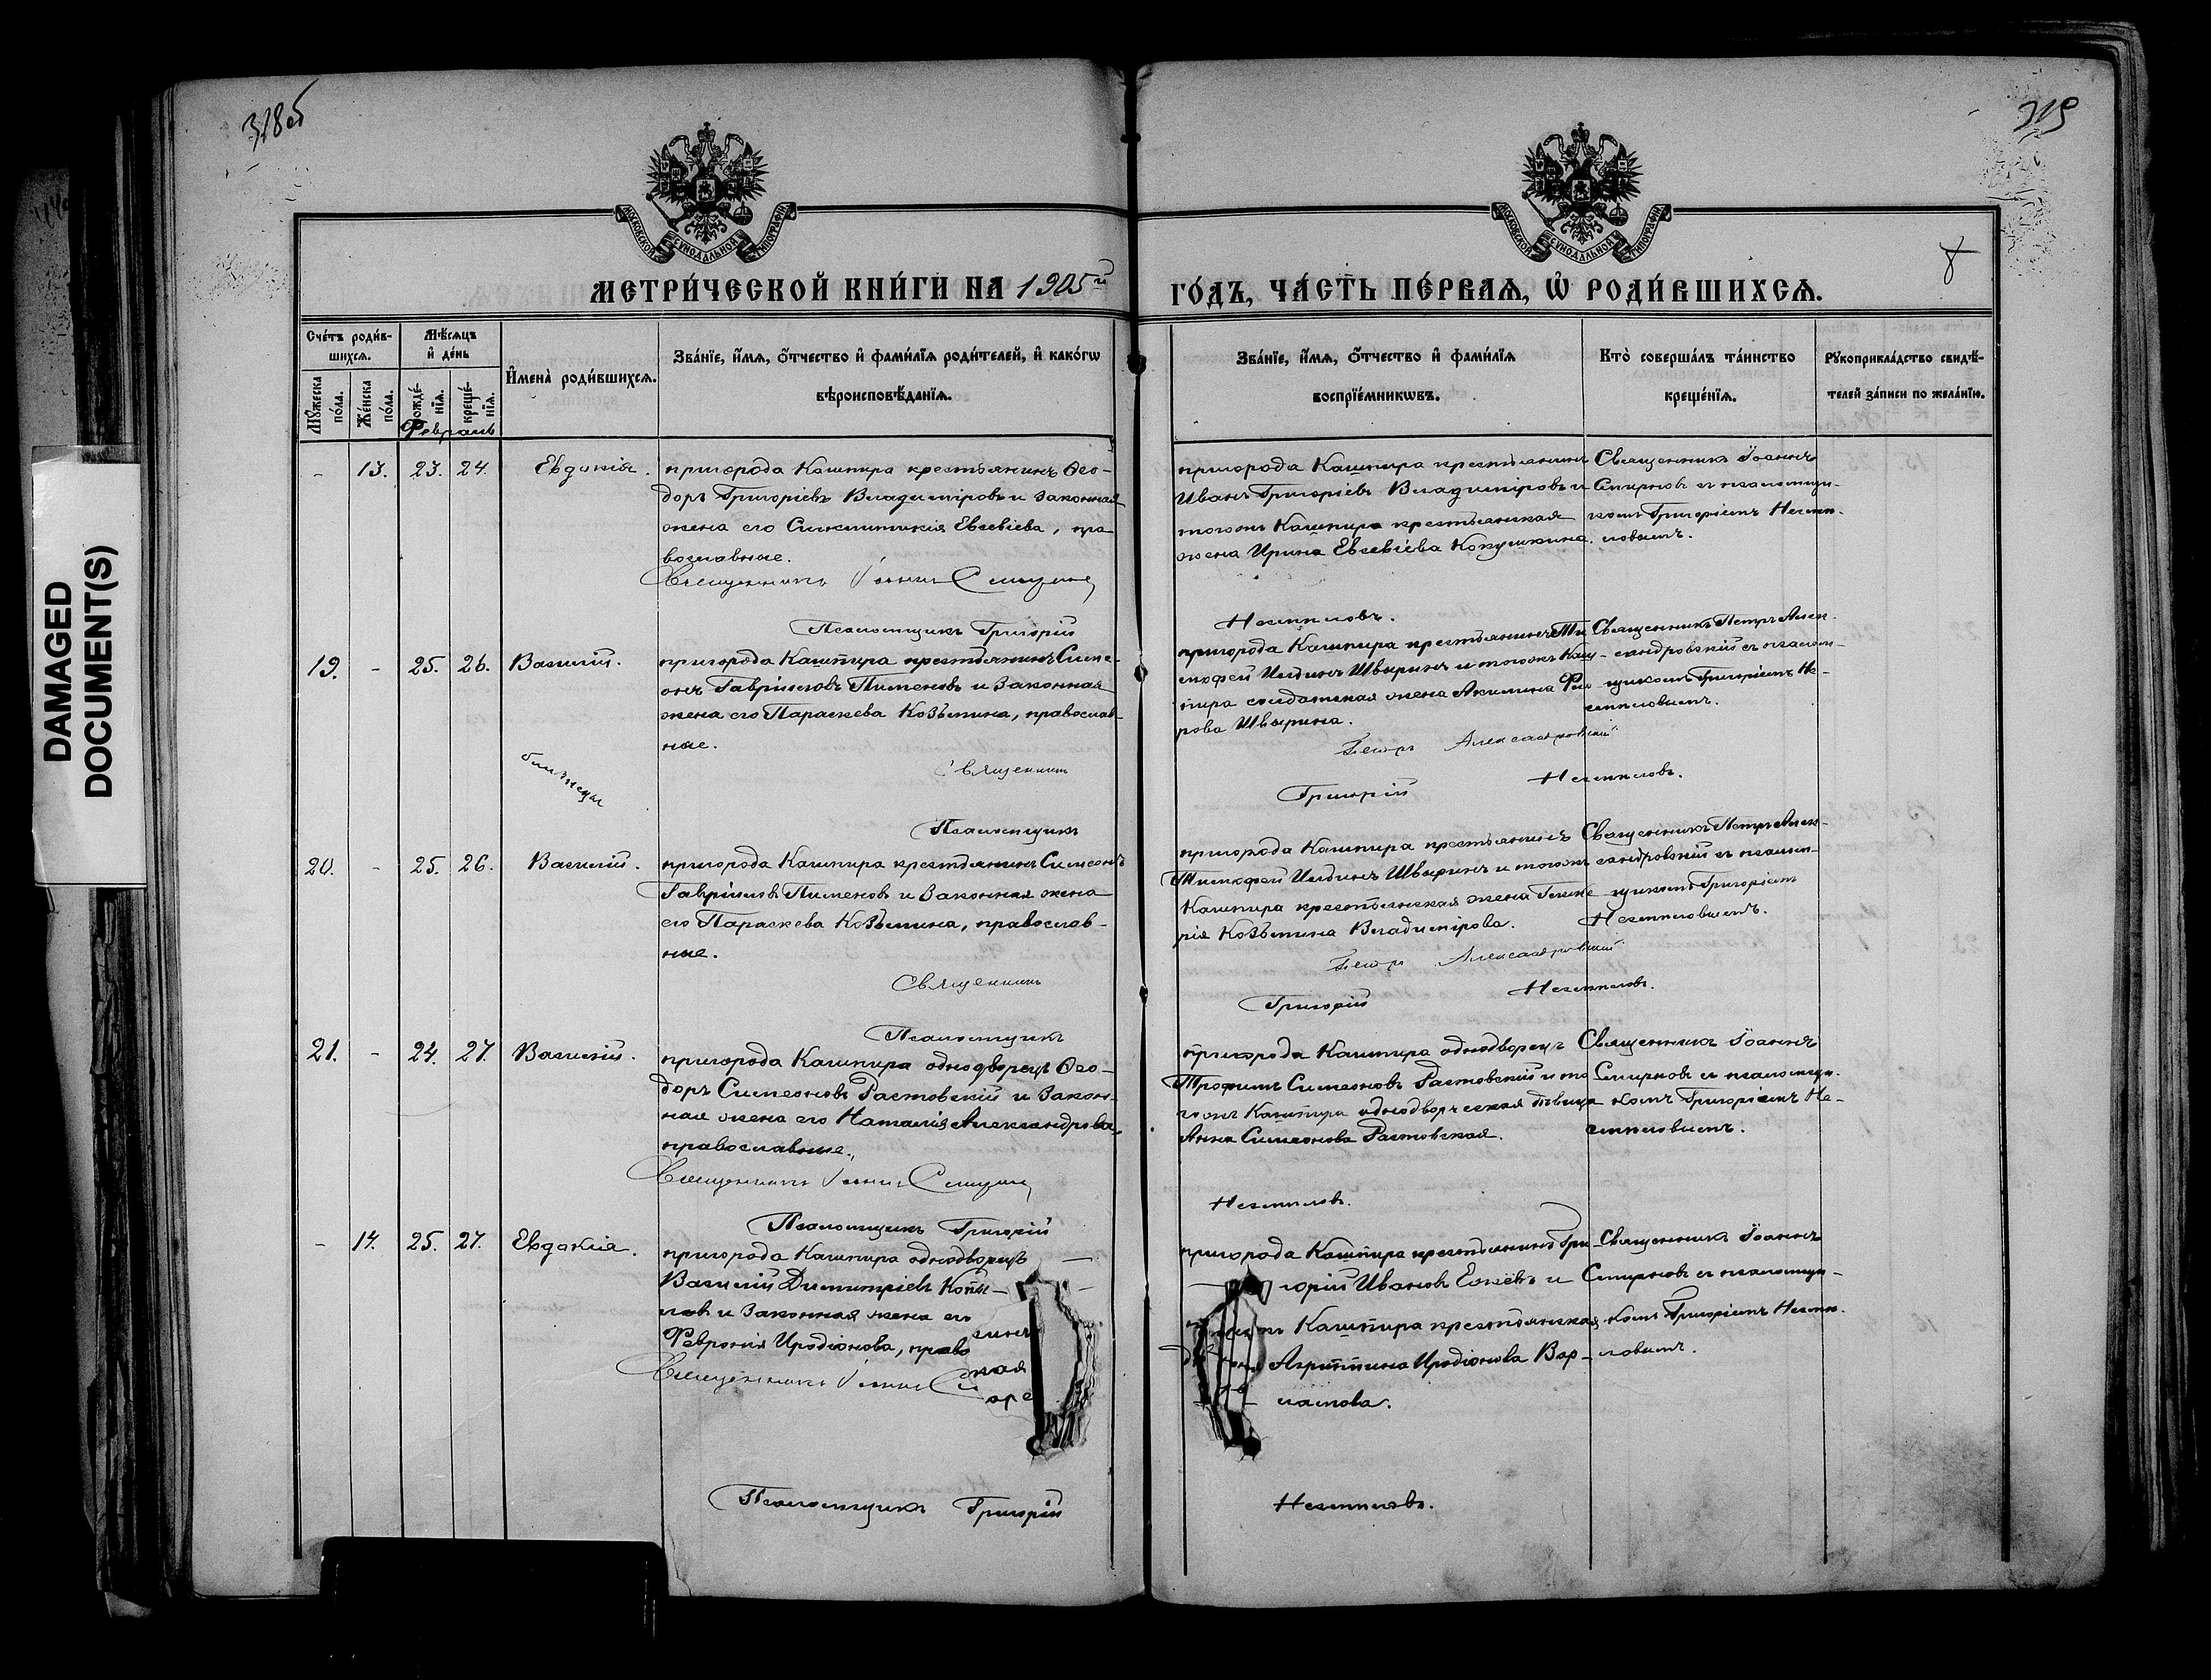 DAMAGED
DOCUMENT(S)
318об
319
8
МОСКОВСКОЙ СѴНОДАЛЬНОЙ ТИПОГРАФІИ
МОСКОВСКОЙ СѴНОДАЛЬНОЙ ТИПОГРАФІИ
МЕТРИ́ЧЕСКОЙ КНИ́ГИ НА 1905й
ГО́ДЪ, ЧА́СТЬ ПЕ́РВАЯ, Ѡ҆ РОДИ́ВШИХСЯ.
Сче́тъ роди́в-
шихся.
Мѣ́сяцъ
и҆ де́нь
Мꙋ́жеска
по́ла.
Же́нска
по́ла.
рожде́-
нїя.
креще́-
нїя.
И҆мена̀ роди́вшихся.
Зва́нїе, и҆́мя, ѻ҆́тчество и҆ фами́лїя роди́телей, и҆ како́гѡ
вѣроисповѣ́данїя.
Зва́нїе, и҆́мя, ѻ҆́тчество и҆ фами́лїя
воспрїе́мникѡвъ.
Кто̀ соверша́лъ та́инство
креще́нїя.
Рꙋкоприкла́дство свидѣ́-
телей за́писи по жела́нїю.
Февраль
- 13. 23. 24. Евдокія.
пригорода Кашпира крестьянинъ Ѳео-
доръ Григоріевъ Владиміровъ и законная
жена его Синклитикія Евсевіева, пра-
вославные.
Священникъ Іоаннъ Смирновъ
Псаломщикъ Григорій
пригорода Кашпира крестьянинъ
Иванъ Григоріевъ Владиміровъ и
тогожъ Кашпира крестьянская
жена Ирина Евсевіева Кокушкина.
Несмѣловъ.
Священникъ Іоаннъ
Смирновъ съ псаломщи-
комъ Григоріемъ Несмѣ-
ловымъ.
19. - 25. 26. Василій.
близнецы
пригорода Кашпира крестьянинъ Симе-
онъ Гавріиловъ Пименовъ и законная
жена его Параскева Козьмина, православ-
ные.
Священникъ
Псаломщикъ
пригорода Кашпира крестьянинъ Ти-
мофей Ильинъ Швыринъ и тогожъ Каш-
пира солдатская жена Акилина
рова Швырина.
Петръ Александровскій
Григорій Несмѣловъ.
Священникъ Петръ Алек-
сандровскій съ псалом-
щикомъ Григоріемъ Не-
смѣловымъ.
20. - 25. 26. Василій.
пригорода Кашпира крестьянинъ Симеонъ
Гавріиловъ Пименовъ и законная жена
его Параскева Козьмина, православ-
ные.
Священникъ
Псаломщикъ
пригорода Кашпира крестьянинъ
Тимофей Ильинъ Швыринъ и тогожъ
Кашпира крестьянская жена Глике-
рія Козьмина Владимірова.
Петръ Александровскій
Григорій Несмѣловъ.
Священникъ Петръ Алек-
сандровскій съ псалом-
щикомъ Григоріемъ
Несмѣловымъ.
21. - 24. 27. Василій.
пригорода Кашпира однодворецъ Ѳео-
доръ Симеоновъ Растовскій и закон-
ная жена его Наталія Александрова,
православные.
Священникъ Іоаннъ Смирновъ
Псаломщикъ Григорій
пригорода Кашпира однодворецъ
Трофимъ Симеоновъ Растовскій и то-
гожъ Кашпира однодворческая дѣвица
Анна Симеонова Растовская.
Несмѣловъ.
Священникъ Іоаннъ
Смирновъ съ псаломщи-
комъ Григоріемъ Не-
смѣловымъ.
- 14. 25. 27. Евдокія.
пригорода Кашпира однодворецъ
Василій Димитріевъ Копы-
ловъ и законная жена его
Февронія Иродіонова, право
Священникъ Іоаннъ См
Псаломщикъ Григорій
пригорода Кашпира крестьянинъ Гри-
горій Ивановъ Ежовъ и
Кашпира крестьянская
Агриппина Иродіонова Вар-
ламова.
Несмѣловъ.
Священникъ Іоаннъ
Смирновъ съ псаломщи-
комъ Григоріемъ Несмѣ-
ловымъ.